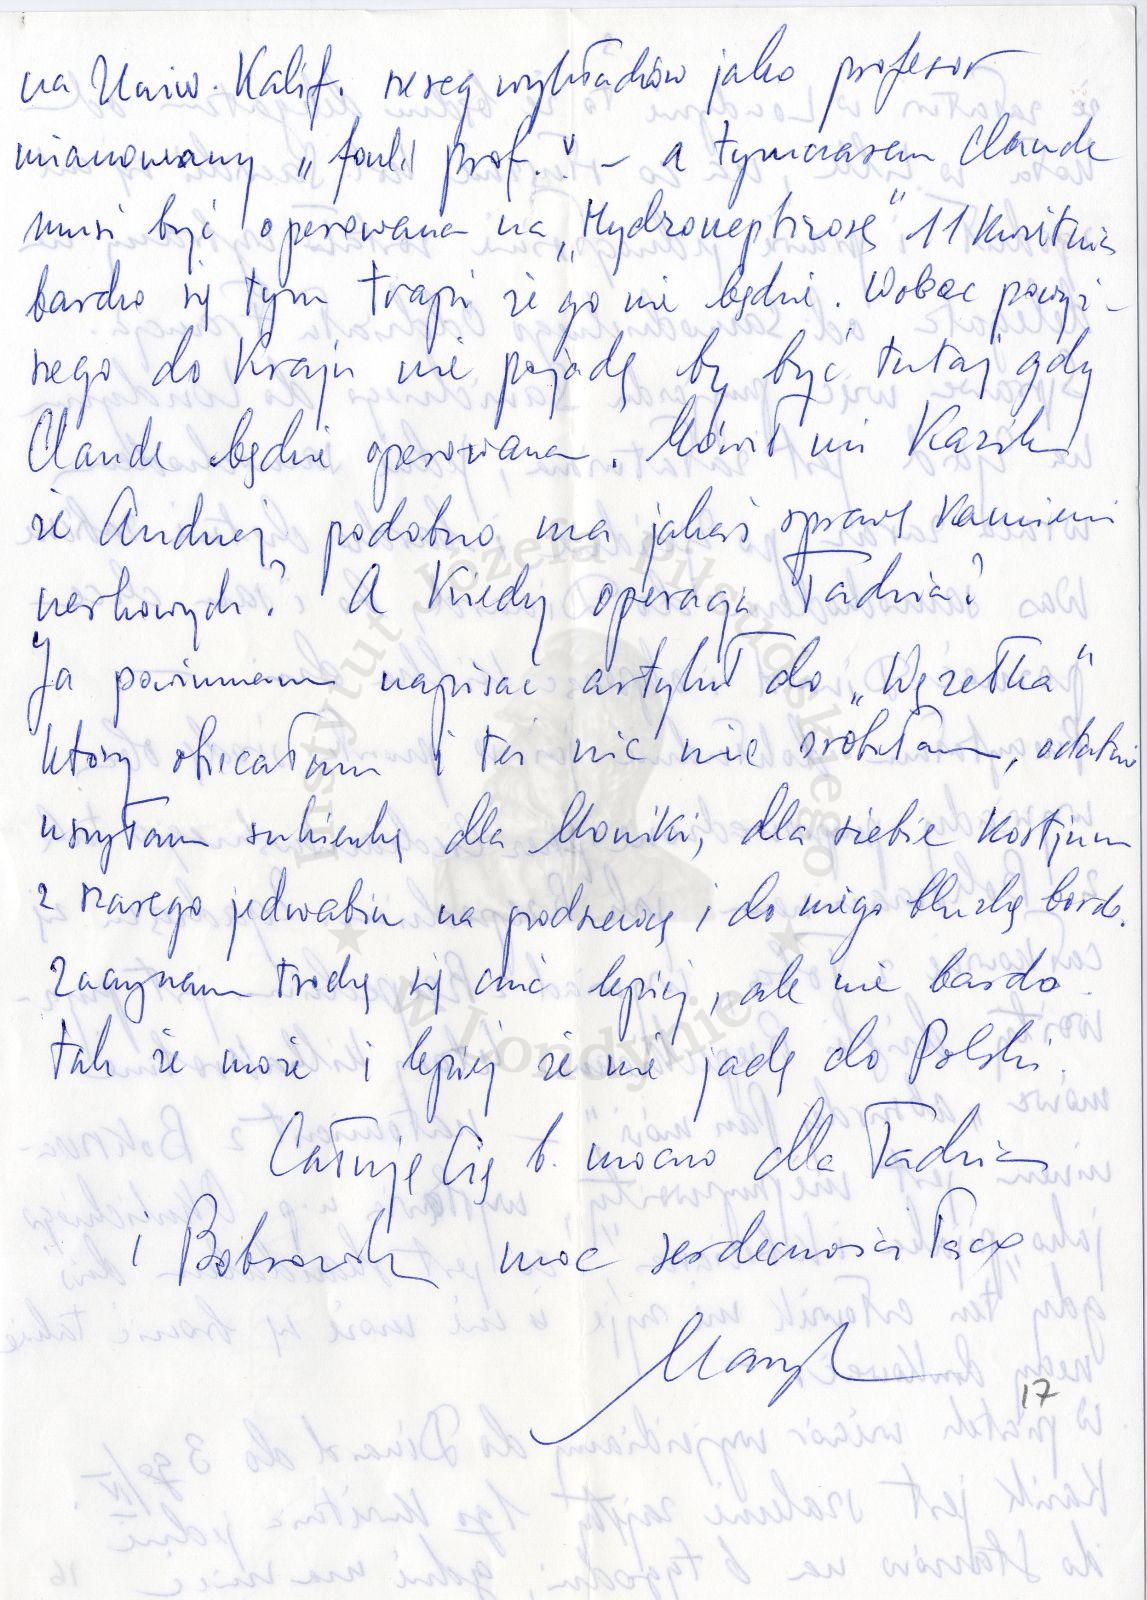 na Uniw. Kalif. szereg wykładów jako profesor
mianowany „foull prof." – a tymczasem Claude
musi być operowana na „Hydroneptrosę" 11 kwietnia
bardzo się tym trapi że go nie będzie. Wobec powyż-
szego do Kraju nie pojadę by być tutaj gdy
Claude będzie operowana. Mówił mi Kazik
że Andrzej podobno ma jakąś sprawę kamieni
nerkowych? A kiedy operacja Tadzia?
Ja powinnam napisać artykuł do „Węzełka"
który obiecałam i też nic nie zrobiłam, ostatnio
uszyłam sukienkę dla Moniki, dla siebie kostjum
z szarego jedwabiu na podszewce i do niego bluzkę bordo.
Zaczynam trochę się czuć lepiej, ale nie bardzo
tak że może i lepiej że nie jadę do Polski.
Całuję Cię b. mocno dla Tadzia
i Bobrowsk moc serdeczności łączę
17
Instytut Józefa Piłsudskiego
w Londynie